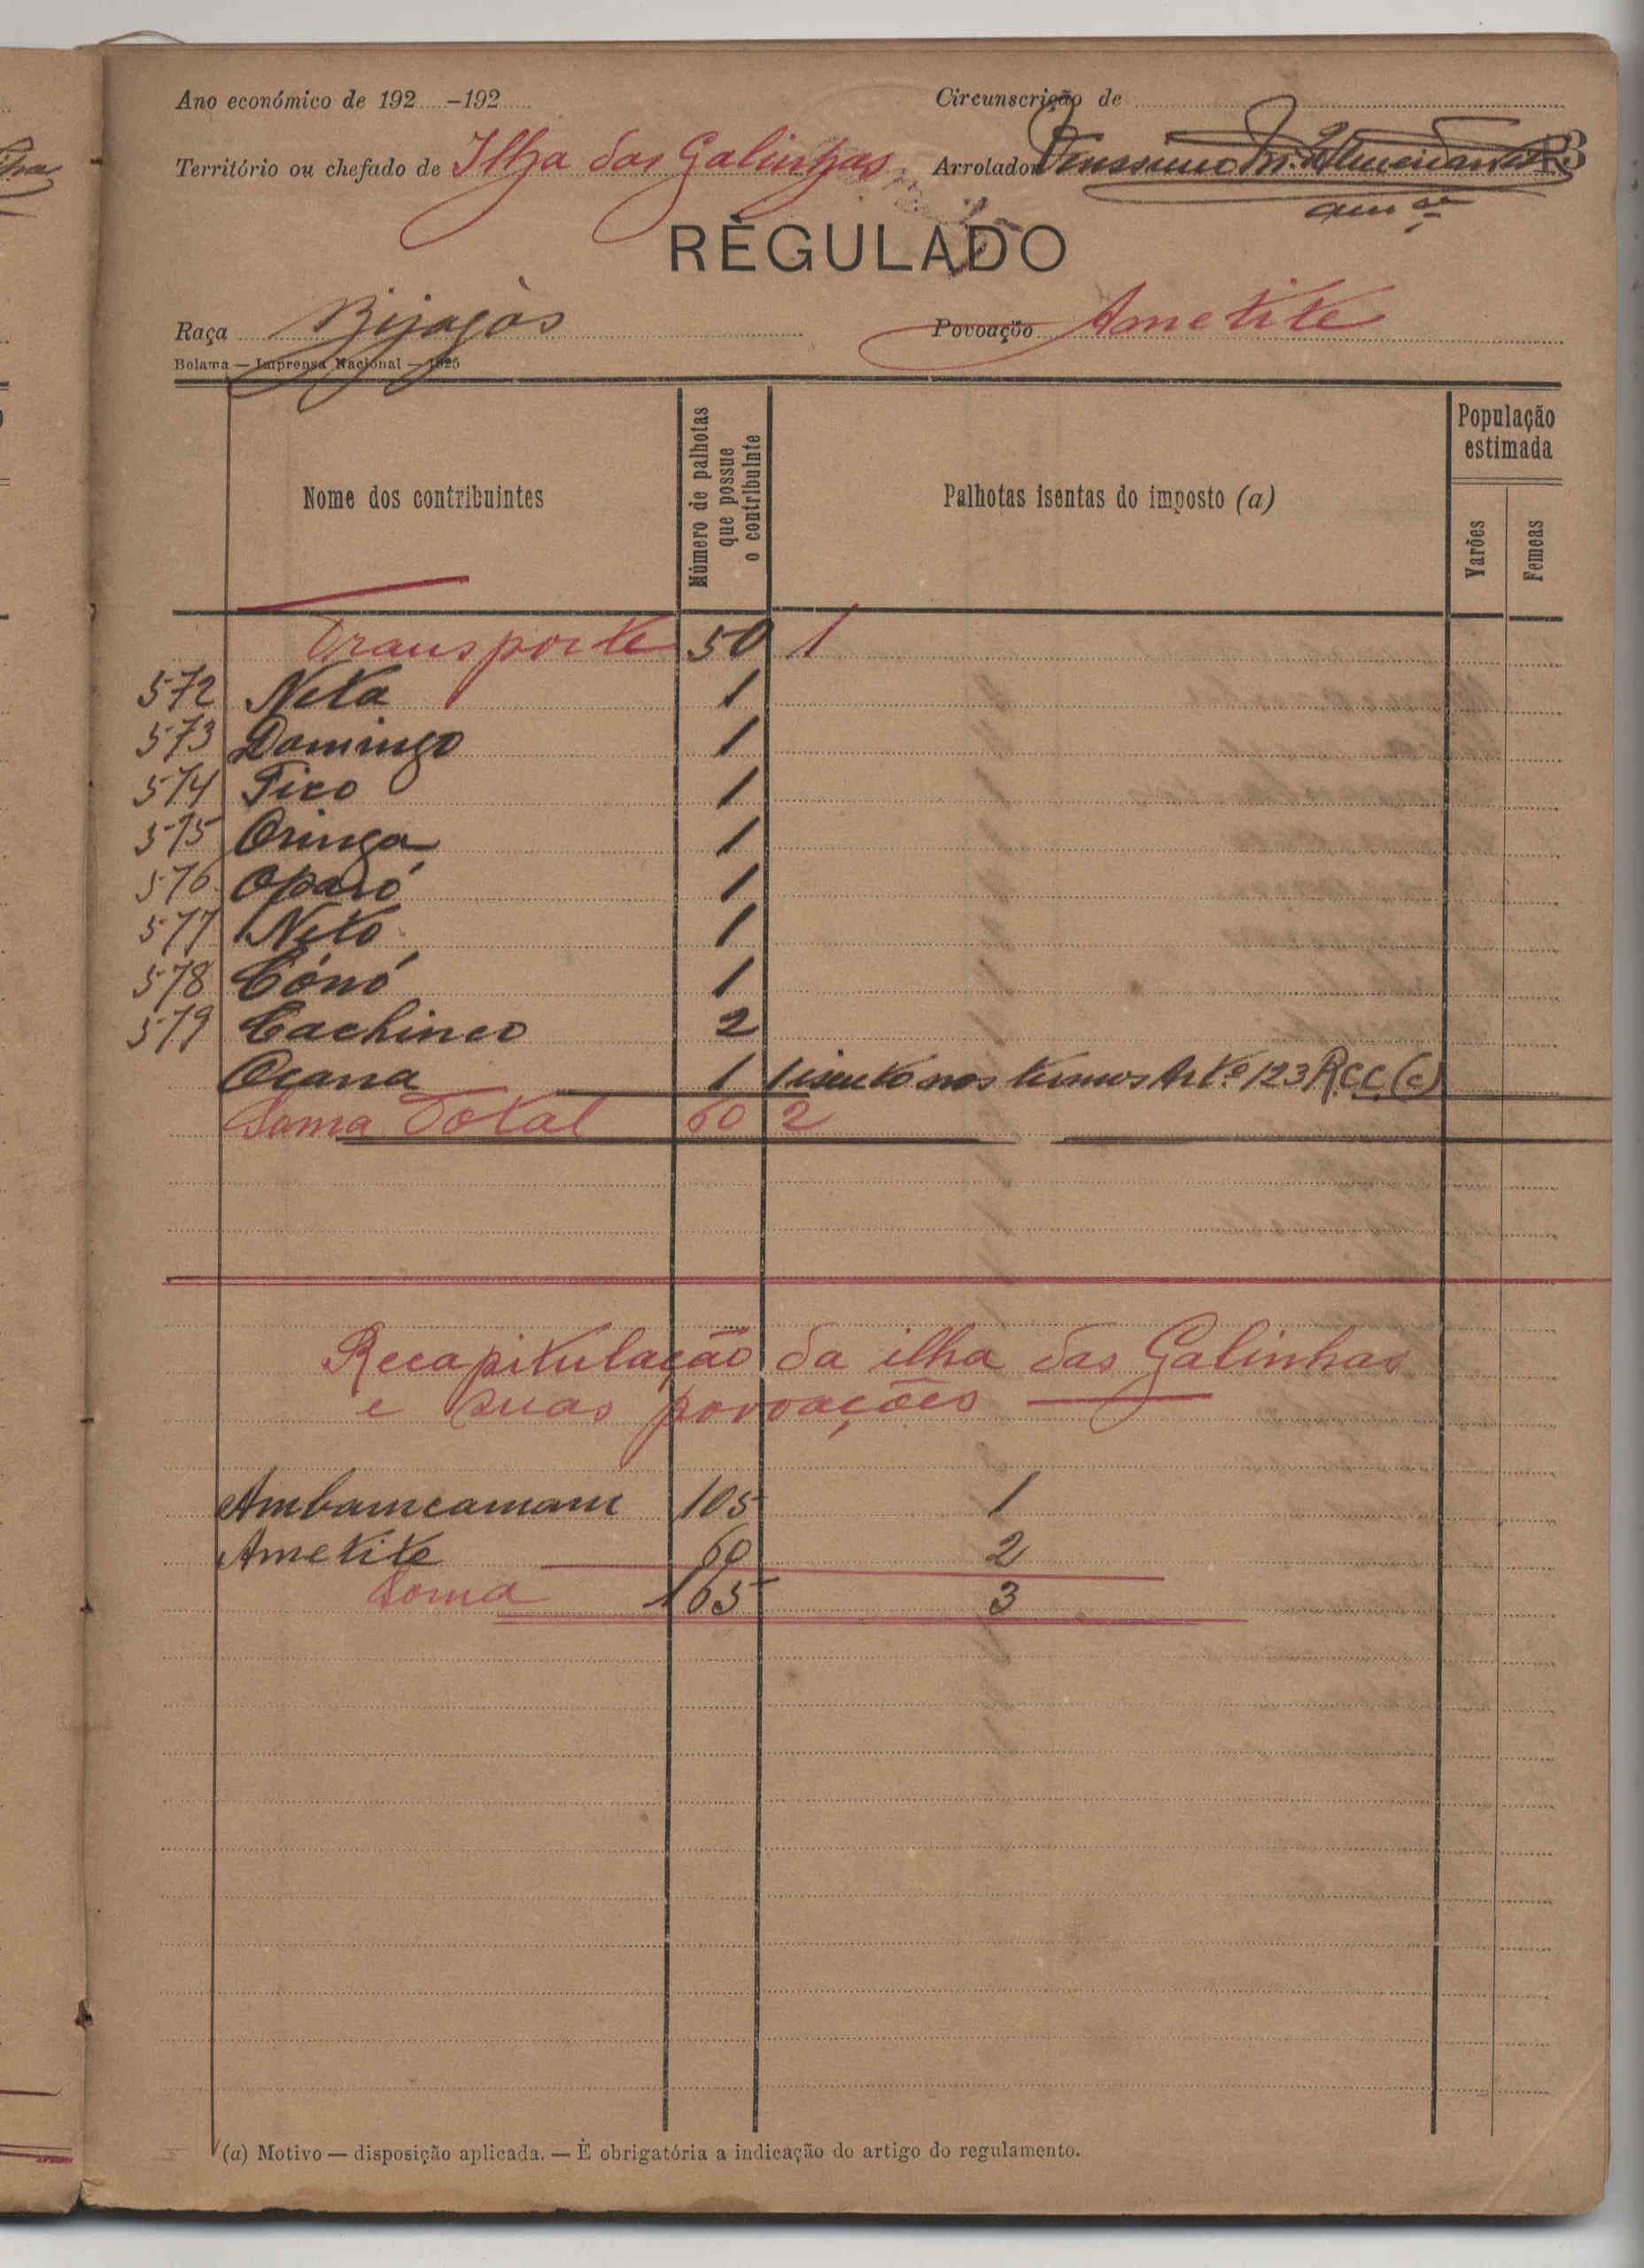 Ano económico de 192.....-192..... Circunscrição de
Território ou chefado de Ilha das Galinhas Arrolador
REGULADO
Raça Bijagós Povoação Ametite
Bolama — Imprensa Nacional — 1925
Nome dos contribuintes
Número de palhotas que possue o contribuinte
Palhotas isentas do imposto (a)
População estimada
Varões
Femeas
Transporte 50 1
572 Neta 1
573 Domingo 1
574 Tico 1
575 Oringa 1
576 Oparó 1
577 Neto 1
578 Cónó 1
579 Cachinco 2
Ocana 1 1 isento nos termos Artº 123 R.C.C. (c)
Soma Total 60 2
Recapitulação da ilha das Galinhas
e suas povoações
Ambamcamam 105 1
Ametite 60 2
Soma 165 3
(a) Motivo — disposição aplicada. — É obrigatória a indicação do artigo do regulamento.